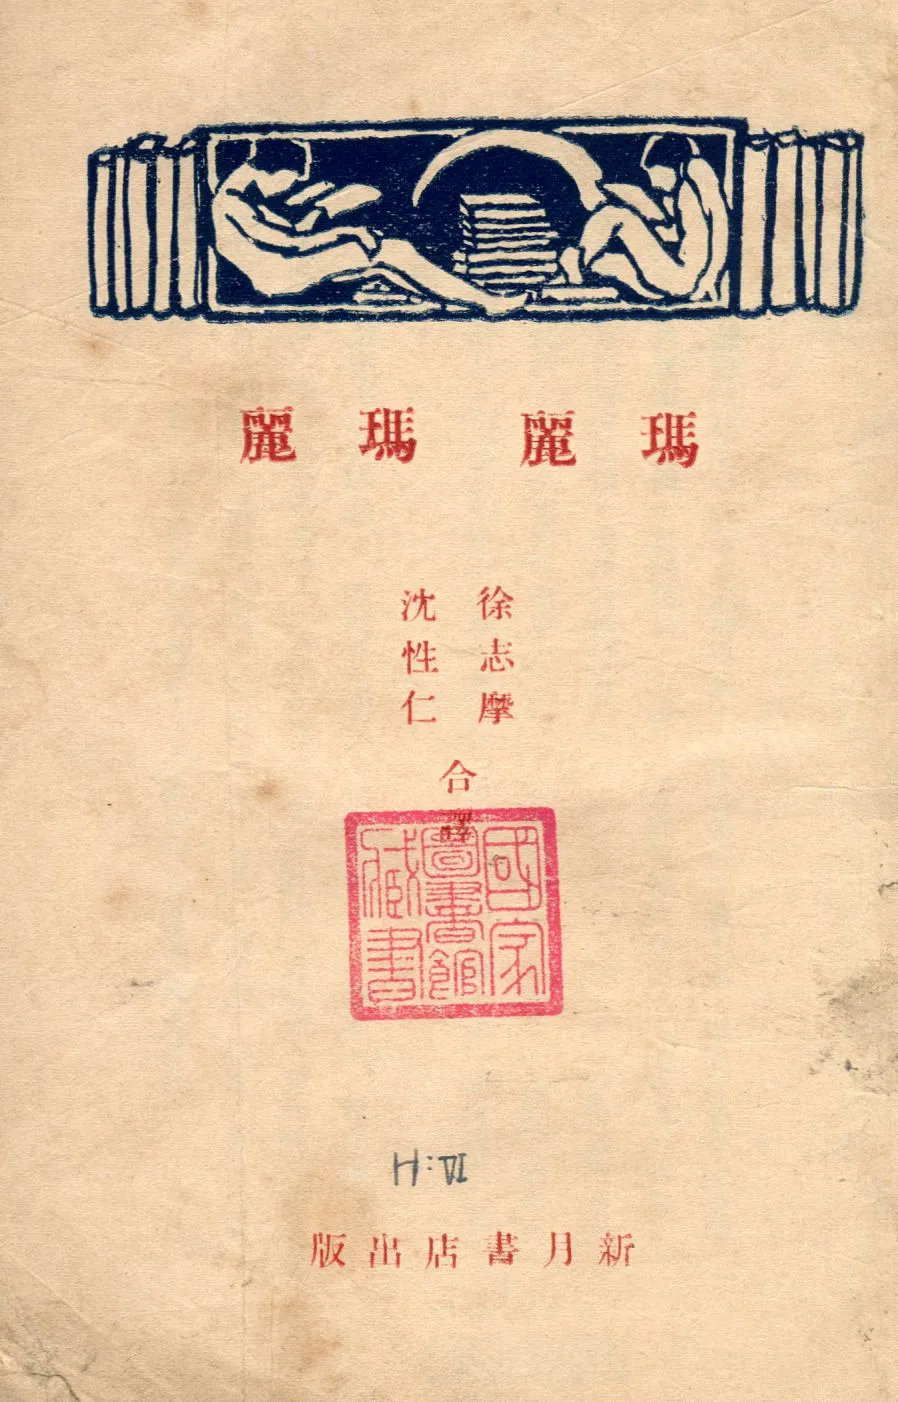 瑪麗 瑪麗
徐志摩
沈性仁
合譯
國家
圖書館
藏書
H:VI
新月書店出版